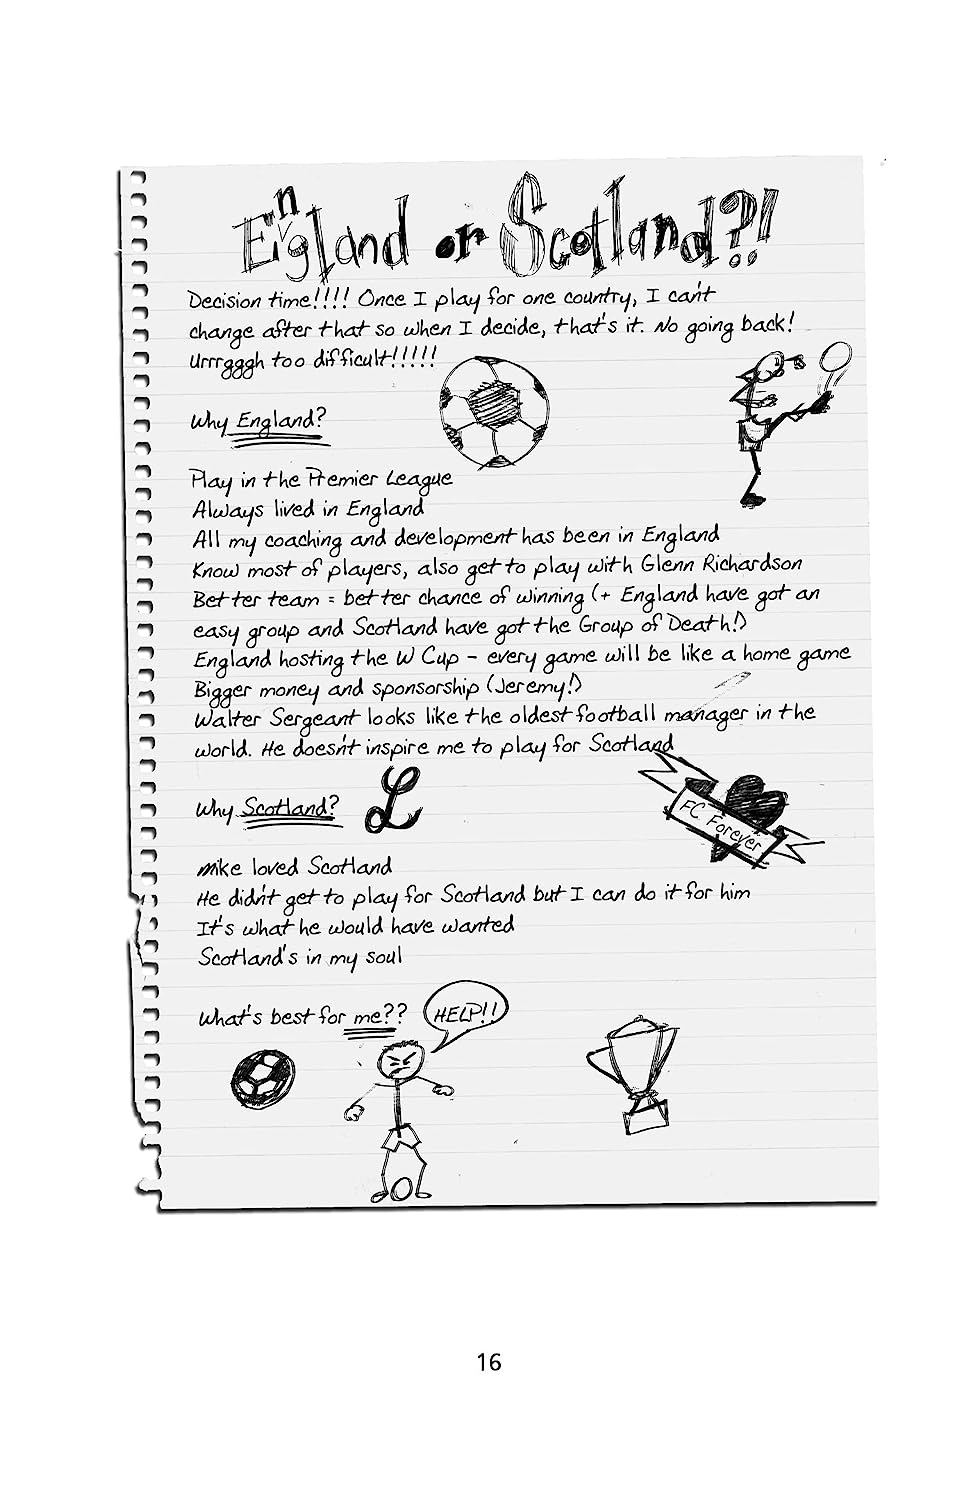 England or Scotland?!
Decision time!!!! Once I play for one country, I can't
change after that so when I decide, that's it. No going back!
Urrrgggh too difficult!!!!!
Why England?
Play in the Premier League
Always lived in England
All my coaching and development has been in England
Know most of players, also get to play with Glenn Richardson
Better team = better chance of winning (+ England have got an
easy group and Scotland have got the Group of Death!)
England hosting the W Cup - every game will be like a home game
Bigger money and sponsorship (Jeremy!)
Walter Sergeant looks like the oldest football manager in the
world. He doesn't inspire me to play for Scotland
Why Scotland?
L
FC Forever
Mike loved Scotland
He didn't get to play for Scotland but I can do it for him
It's what he would have wanted
Scotland's in my soul
What's best for me??
HELP!!
16